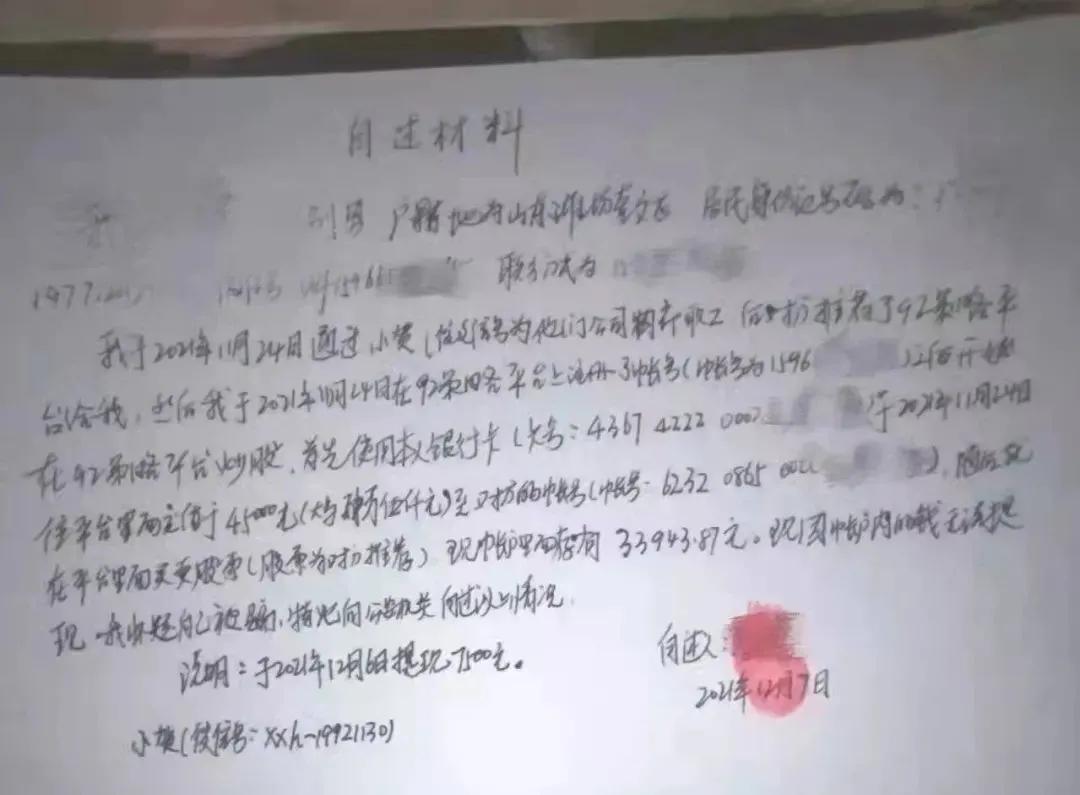 自述材料
我 别男 户籍地为山东潍坊奎文区 居民身份证号码为：
1977 微信号 wf1596 联系方式为
我于2021年11月24日通过小樊(微信称为他们公司期存职工 后对方推荐了92策略平
台给我，然后我于2021年11月24日在92策略平台上注册了帐号(帐号为1596 )后开始
在92策略平台炒股，首先使用本人银行卡(卡号：4367 4222 0002 )于2021年11月24日
往平台里面充值了45000元(大写肆万伍仟元)至对方的帐号(帐号：6232 0865 002 )，随后又
在平台里面买卖股票(股票为对方推荐)现帐户里面存有33943.87元。现因帐户内的钱无法提
现，我怀疑自己被骗，特此向公安机关自述以上情况。
说明：于2021年12月6日提现7500元。
自述人：
2021年12月7日
小樊(微信号：xxh-19921130)